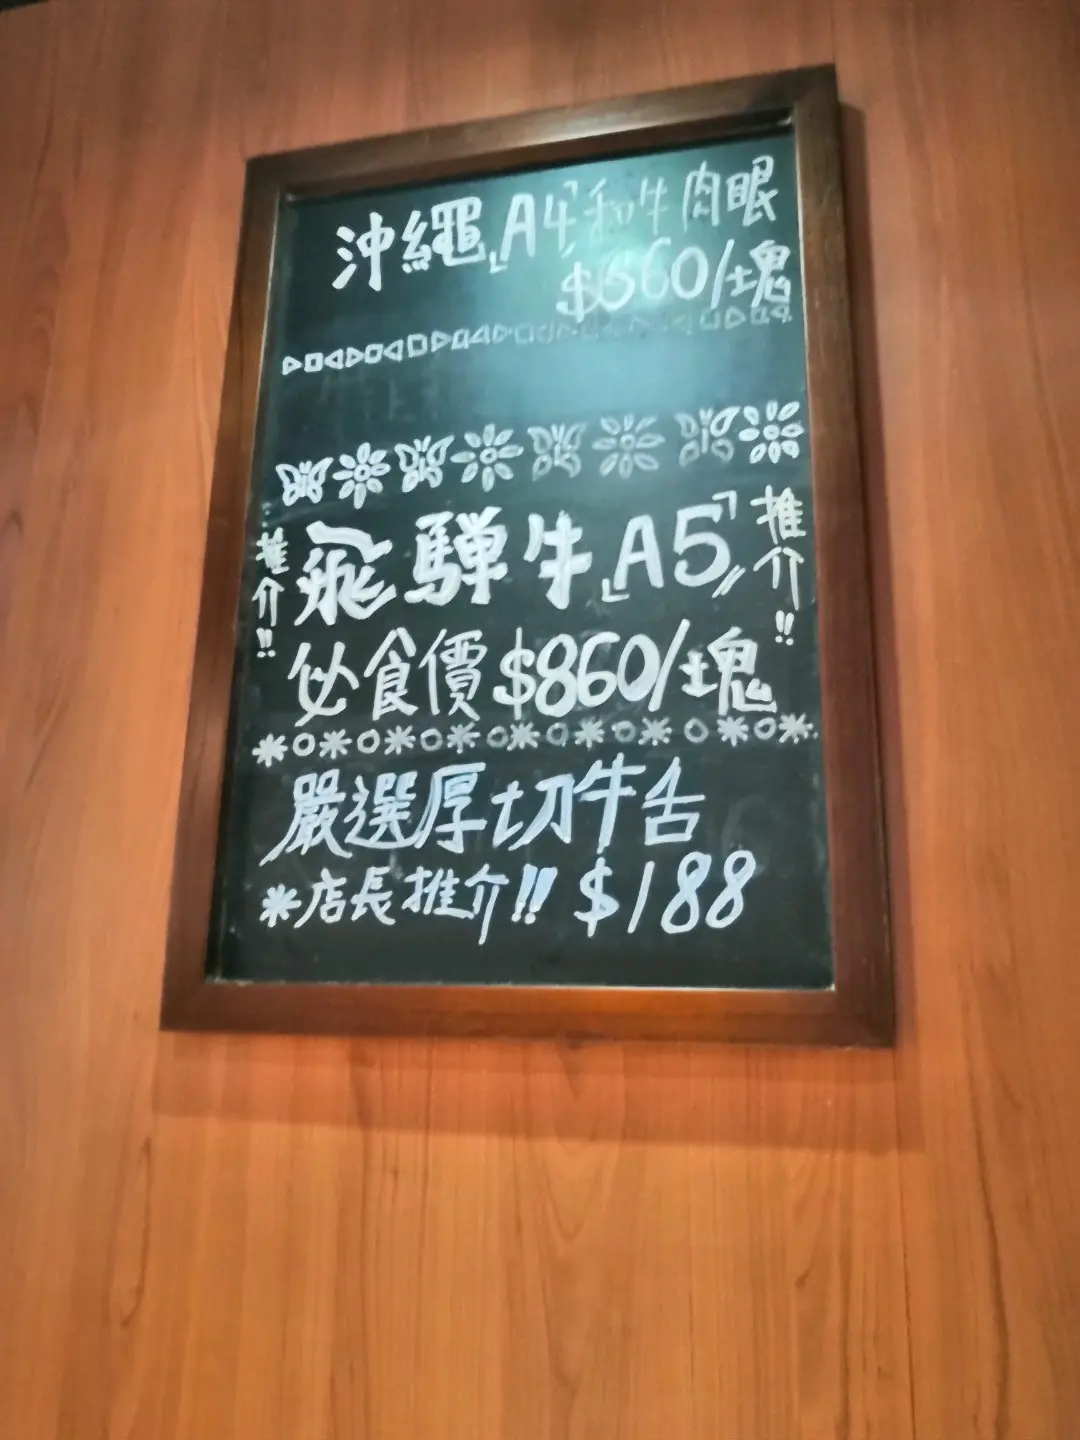 沖繩「A4」和牛肉眼
$560/塊
推介!!
飛驒牛「A5」
推介!!
必食價$860/塊
嚴選厚切牛舌
*店長推介!! $188